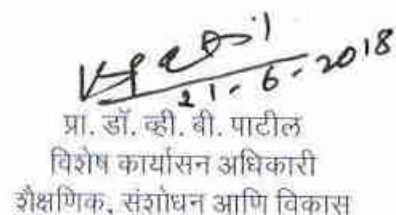 21-6-2018
प्रा. डॉ. व्ही. बी. पाटील
विशेष कार्यासन अधिकारी
शैक्षणिक, संशोधन आणि विकास